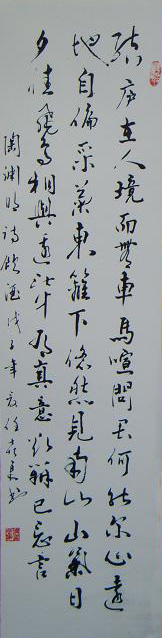 結庐在人境而無車馬喧問君何能尔心遠
地自偏采菊東籬下悠然見南山山氣日
夕佳飛鳥相與還此中有真意欲辯已忘言
陶淵明詩飲酒戊子年